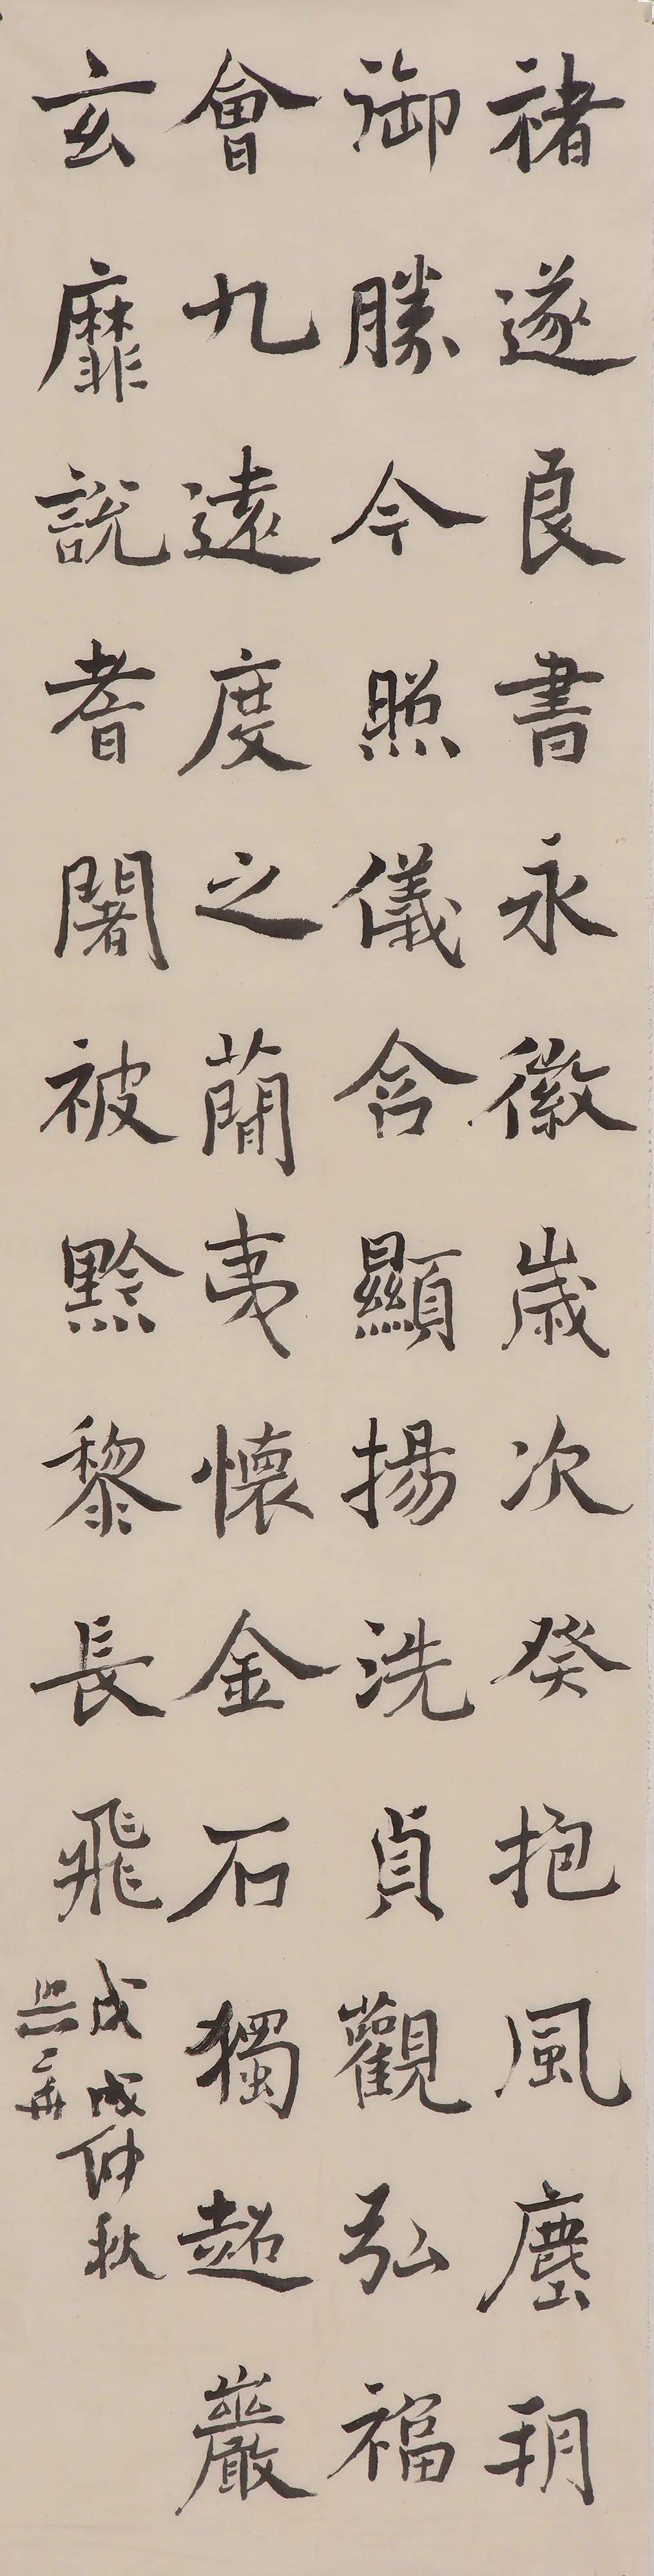 褚遂良書永徽歲次癸抱風塵玥
御勝今照儀含顯揚洗貞觀弘福
會九遠度之蘭夷懷金石獨超巖
玄靡說耆闍被黔黎長飛
戊戌仲秋